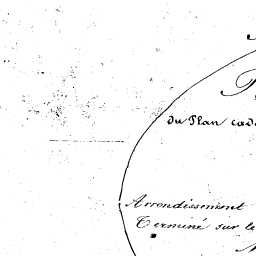 du Plan cad
Arrondissement
Terminé sur le